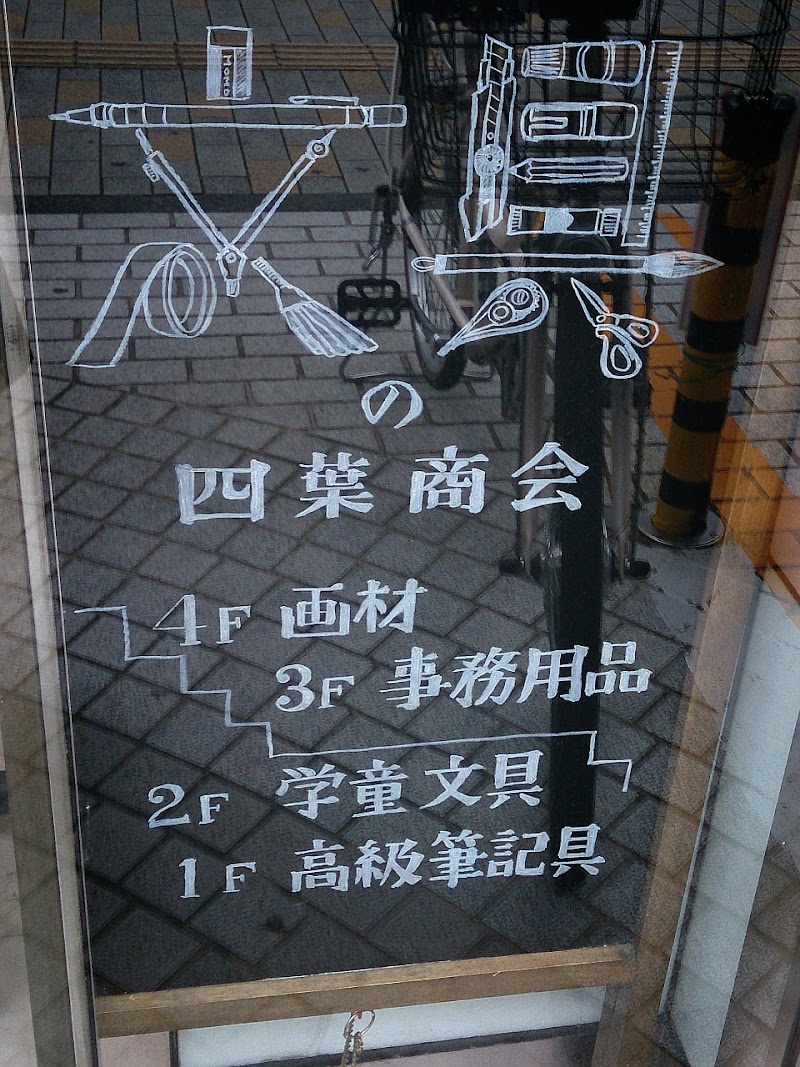 MONO
文具
の
四葉商会
4F 画材
3F 事務用品
2F 学童文具
1F 高級筆記具